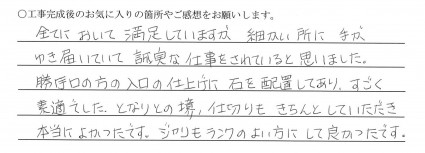 ○工事完成後のお気に入りの箇所やご感想をお願いします。
全てにおいて満足していますが 細かい所に手が
ゆき届いていて 誠実な仕事をされていると思いました。
勝手口の方の入口の仕上げに石を配置してあり、すごく
素適でした。となりとの境、仕切りもきちんとしていただき
本当によかったです。ジャリもランクのよい方にして良かったです。